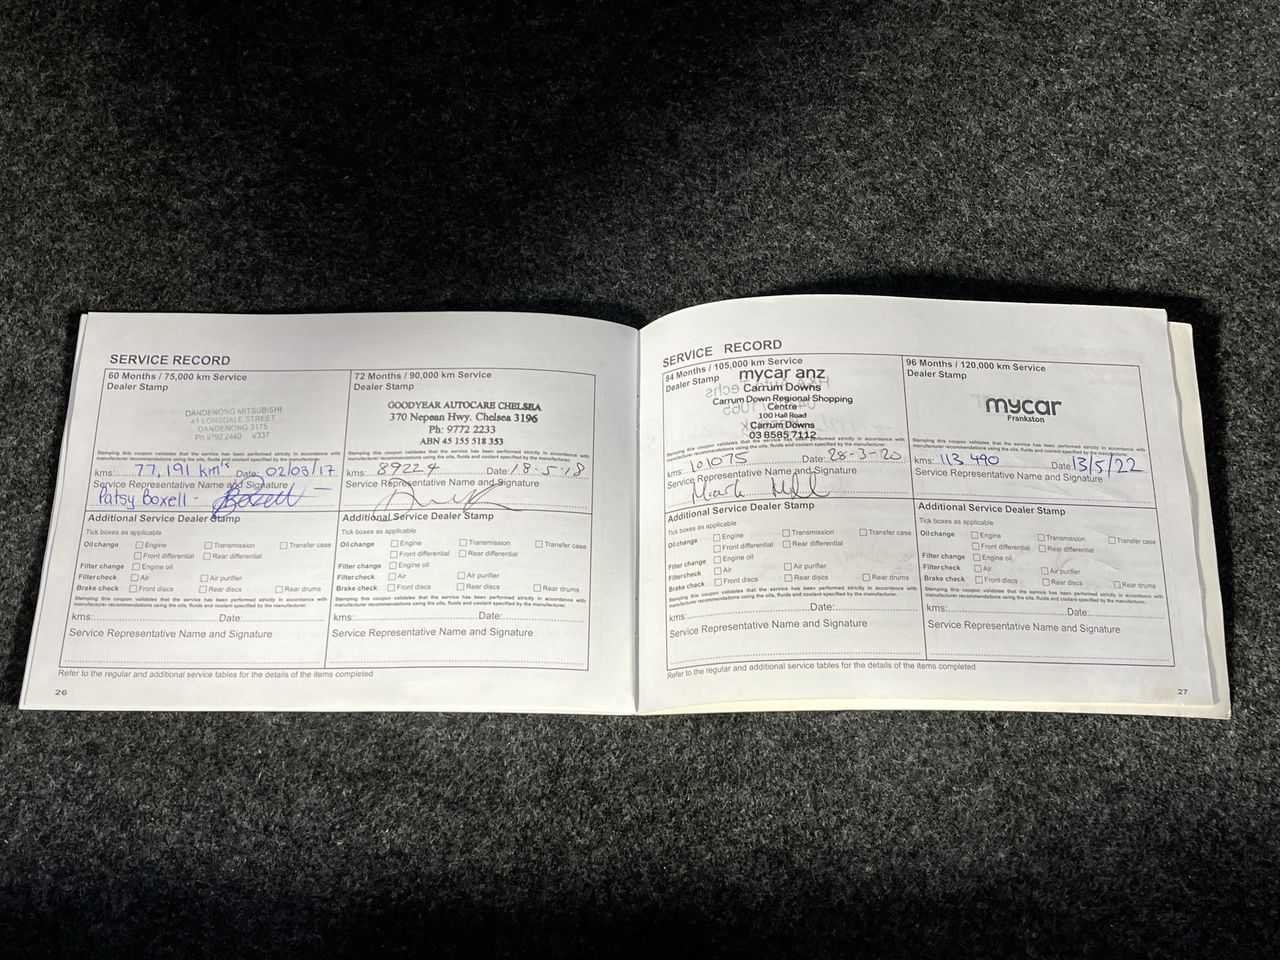 SERVICE RECORD
60 Months / 75,000 km Service
Dealer Stamp
DANDENONG MITSUBISHI
41 LONSDALE STREET
DANDENONG 3175
Ph 9792 2440 V337
Stamping this coupon validates that the service has been performed strictly in accordance with
manufacturer recommendations using the oils, fluids and coolant specified by the manufacturer.
kms: 77,191 km's Date: 02/03/17
Service Representative Name and Signature
Patsy Boxell - Boxell
Additional Service Dealer Stamp
Tick boxes as applicable
Oil change Engine Transmission Transfer case
Front differential Rear differential
Filter change Engine oil
Filter check Air Air purifier
Brake check Front discs Rear discs Rear drums
Stamping this coupon validates that the service has been performed strictly in accordance with
manufacturer recommendations using the oils, fluids and coolant specified by the manufacturer.
kms: Date:
Service Representative Name and Signature
72 Months / 90,000 km Service
Dealer Stamp
GOODYEAR AUTOCARE CHELSEA
370 Nepean Hwy. Chelsea 3196
Ph: 9772 2233
ABN 45 155 518 353
Stamping this coupon validates that the service has been performed strictly in accordance with
manufacturer recommendations using the oils, fluids and coolant specified by the manufacturer.
kms: 89224 Date: 18-5-18
Service Representative Name and Signature
Additional Service Dealer Stamp
Tick boxes as applicable
Oil change Engine Transmission Transfer case
Front differential Rear differential
Filter change Engine oil
Filter check Air Air purifier
Brake check Front discs Rear discs Rear drums
Stamping this coupon validates that the service has been performed strictly in accordance with
manufacturer recommendations using the oils, fluids and coolant specified by the manufacturer.
kms: Date:
Service Representative Name and Signature
Refer to the regular and additional service tables for the details of the items completed
26
SERVICE RECORD
84 Months / 105,000 km Service
Dealer Stamp
mycar anz
Carrum Downs
Carrum Down Regional Shopping
Centre
100 Hall Road
Carrum Downs
03 8585 7112
Stamping this coupon validates that the service has been performed strictly in accordance with
manufacturer recommendations using the oils, fluids and coolant specified by the manufacturer.
kms: 101075 Date: 28-3-20
Service Representative Name and Signature
Mark
Additional Service Dealer Stamp
Tick boxes as applicable
Oil change Engine Transmission Transfer case
Front differential Rear differential
Filter change Engine oil
Filter check Air Air purifier
Brake check Front discs Rear discs Rear drums
Stamping this coupon validates that the service has been performed strictly in accordance with
manufacturer recommendations using the oils, fluids and coolant specified by the manufacturer.
kms: Date:
Service Representative Name and Signature
96 Months / 120,000 km Service
Dealer Stamp
mycar
Frankston
Stamping this coupon validates that the service has been performed strictly in accordance with
manufacturer recommendations using the oils, fluids and coolant specified by the manufacturer.
kms: 113 490 Date 13/5/22
Service Representative Name and Signature
Additional Service Dealer Stamp
Tick boxes as applicable
Oil change Engine Transmission Transfer case
Front differential Rear differential
Filter change Engine oil
Filter check Air Air purifier
Brake check Front discs Rear discs Rear drums
Stamping this coupon validates that the service has been performed strictly in accordance with
manufacturer recommendations using the oils, fluids and coolant specified by the manufacturer.
kms: Date:
Service Representative Name and Signature
Refer to the regular and additional service tables for the details of the items completed
27